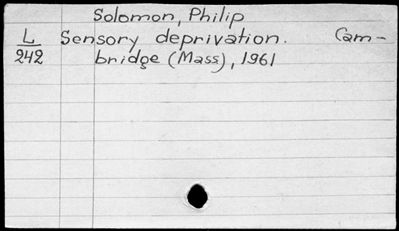 Solomon, Philip
L Sensory deprivation. Cam-
242 bridge (Mass), 1961